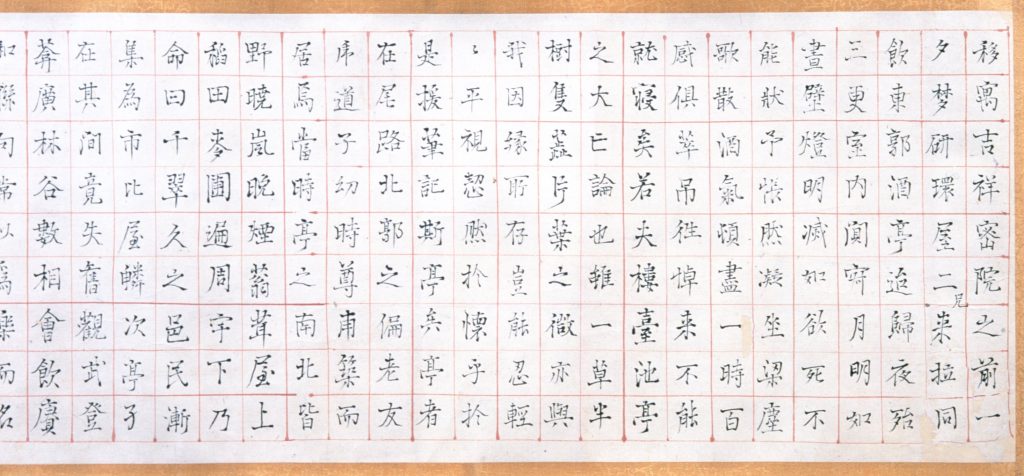 移寓吉祥密院之前一
夕梦研環屋二兄来拉同
飲東郭酒亭迨歸夜殆
三更室内闃寂月明如
晝壁燈明滅如欲死不
能狀予悵然凝坐梁塵
歌散酒氣頓盡一時百
感俱萃吊徃悼来不能
就寝矣若夫樓臺池亭
之大亡論也雖一草半
樹隻蕋片葉之微亦與
我因縁所存豈能忍輕
〻平視恝然於懐乎於
是援筆記斯亭兵亭者
在尾路北郭之偏老友
乕道子幼時尊甫築而
居焉當時亭之南北皆
野暁嵐晩煙蓊茸屋上
稲田麥圃遍周宇下乃
命曰千翠久之邑民漸
集為市比屋鱗次亭子
在其间竟失舊觀武登
莽廣林谷數相會飲賡
和聯句常以爲樂而名